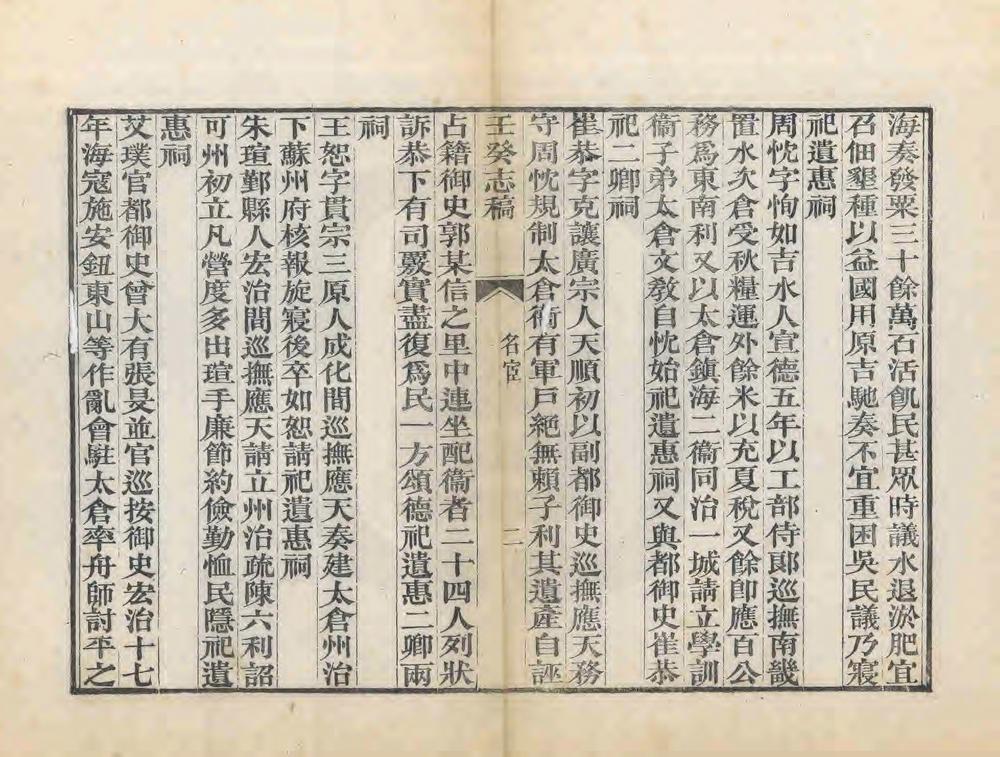 海奏發粟三十餘萬石活飢民甚眾時議水退淤肥宜
召佃墾種以益國用原吉馳奏不宜重困吳民議乃寢
祀遺惠祠
周忱字恂如吉水人宣德五年以工部侍郞巡撫南畿
置水次倉受秋糧運外餘米以充夏稅又餘卽應百公
務爲東南利又以太倉鎮海二衞同治一城請立學訓
衞子弟太倉文敎自忱始祀遺惠祠又與都御史崔恭
祀二卿祠
崔恭字克讓廣宗人天順初以副都御史巡撫應天務
守周忱規制太倉衞有軍戶絕無賴子利其遺產自誣
壬癸志稿
名宦
二
占籍御史郭某信之里中連坐配衞者二十四人列狀
訴恭下有司覈實盡復爲民一方頌德祀遺惠二卿兩
祠
王恕字貫宗三原人成化間巡撫應天奏建太倉州治
下蘇州府核報旋寢後卒如恕請祀遺惠祠
朱瑄鄞縣人宏治間巡撫應天請立州治疏陳六利詔
可州初立凡營度多出瑄手廉節約儉勤恤民隱祀遺
惠祠
艾璞官都御史曾大有張旻並官巡按御史宏治十七
年海寇施安鈕東山等作亂會駐太倉率舟師討平之